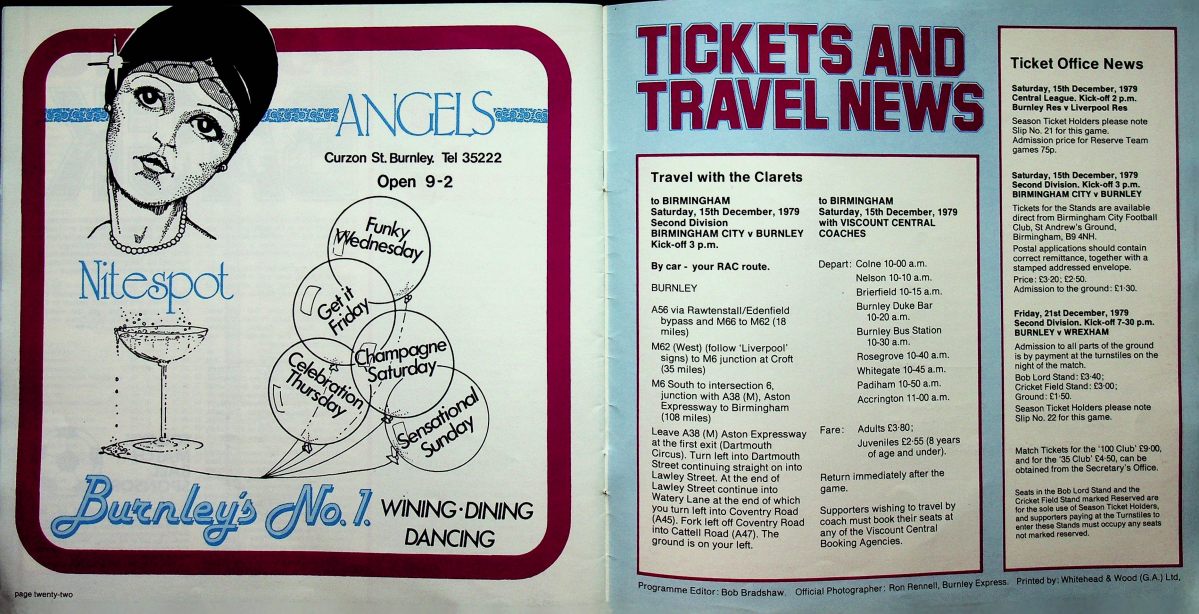 ANGELS
Curzon St. Burnley. Tel 35222
Open 9-2
Nitespot
Funky
Wednesday
Get it
Friday
Champagne
Saturday
Celebration
Thursday
Sensational
Sunday
Burnley's No. 1.
WINING · DINING
DANCING
page twenty-two
TICKETS AND
TRAVEL NEWS
Travel with the Clarets
to BIRMINGHAM
Saturday, 15th December, 1979
Second Division
BIRMINGHAM CITY v BURNLEY
Kick-off 3 p.m.
By car - your RAC route.
BURNLEY
A56 via Rawtenstall/Edenfield
bypass and M66 to M62 (18
miles)
M62 (West) (follow 'Liverpool'
signs) to M6 junction at Croft
(35 miles)
M6 South to intersection 6,
junction with A38 (M), Aston
Expressway to Birmingham
(108 miles)
Leave A38 (M) Aston Expressway
at the first exit (Dartmouth
Circus). Turn left into Dartmouth
Street continuing straight on into
Lawley Street. At the end of
Lawley Street continue into
Watery Lane at the end of which
you turn left into Coventry Road
(A45). Fork left off Coventry Road
into Cattell Road (A47). The
ground is on your left.
to BIRMINGHAM
Saturday, 15th December, 1979
with VISCOUNT CENTRAL
COACHES
Depart: Colne 10-00 a.m.
Nelson 10-10 a.m.
Brierfield 10-15 a.m.
Burnley Duke Bar
10-20 a.m.
Burnley Bus Station
10-30 a.m.
Rosegrove 10-40 a.m.
Whitegate 10-45 a.m.
Padiham 10-50 a.m.
Accrington 11-00 a.m.
Fare: Adults £3·80;
Juveniles £2·55 (8 years
of age and under).
Return immediately after the
game.
Supporters wishing to travel by
coach must book their seats at
any of the Viscount Central
Booking Agencies.
Ticket Office News
Saturday, 15th December, 1979
Central League. Kick-off 2 p.m.
Burnley Res v Liverpool Res
Season Ticket Holders please note
Slip No. 21 for this game.
Admission price for Reserve Team
games 75p.
Saturday, 15th December, 1979
Second Division. Kick-off 3 p.m.
BIRMINGHAM CITY v BURNLEY
Tickets for the Stands are available
direct from Birmingham City Football
Club, St Andrew's Ground,
Birmingham, B9 4NH.
Postal applications should contain
correct remittance, together with a
stamped addressed envelope.
Price: £3·20; £2·50.
Admission to the ground: £1·30.
Friday, 21st December, 1979
Second Division. Kick-off 7-30 p.m.
BURNLEY v WREXHAM
Admission to all parts of the ground
is by payment at the turnstiles on the
night of the match.
Bob Lord Stand: £3·40;
Cricket Field Stand: £3·00;
Ground: £1·50.
Season Ticket Holders please note
Slip No. 22 for this game.
Match Tickets for the '100 Club' £9·00,
and for the '35 Club' £4·50, can be
obtained from the Secretary's Office.
Seats in the Bob Lord Stand and the
Cricket Field Stand marked Reserved are
for the sole use of Season Ticket Holders,
and supporters paying at the Turnstiles to
enter these Stands must occupy any seats
not marked reserved.
Programme Editor: Bob Bradshaw. Official Photographer: Ron Rennell, Burnley Express. Printed by: Whitehead & Wood (G.A.) Ltd,